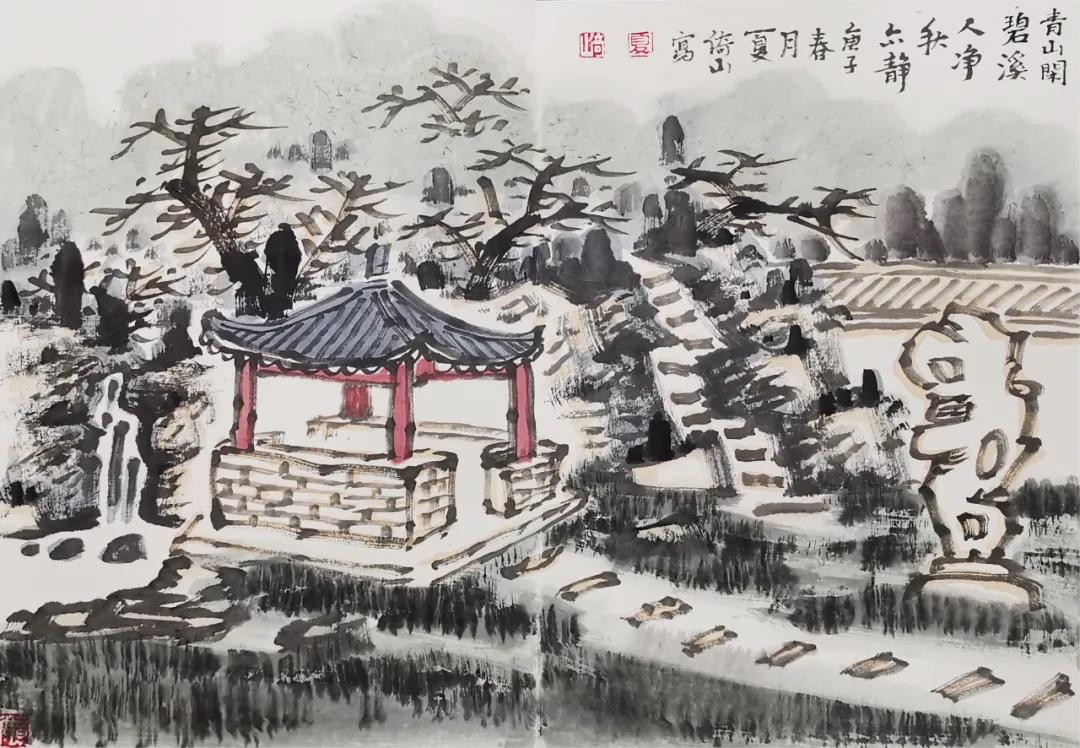 青山閑
碧溪
人净
秋
亦静
庚子
春
月
夏
山
寫
夏